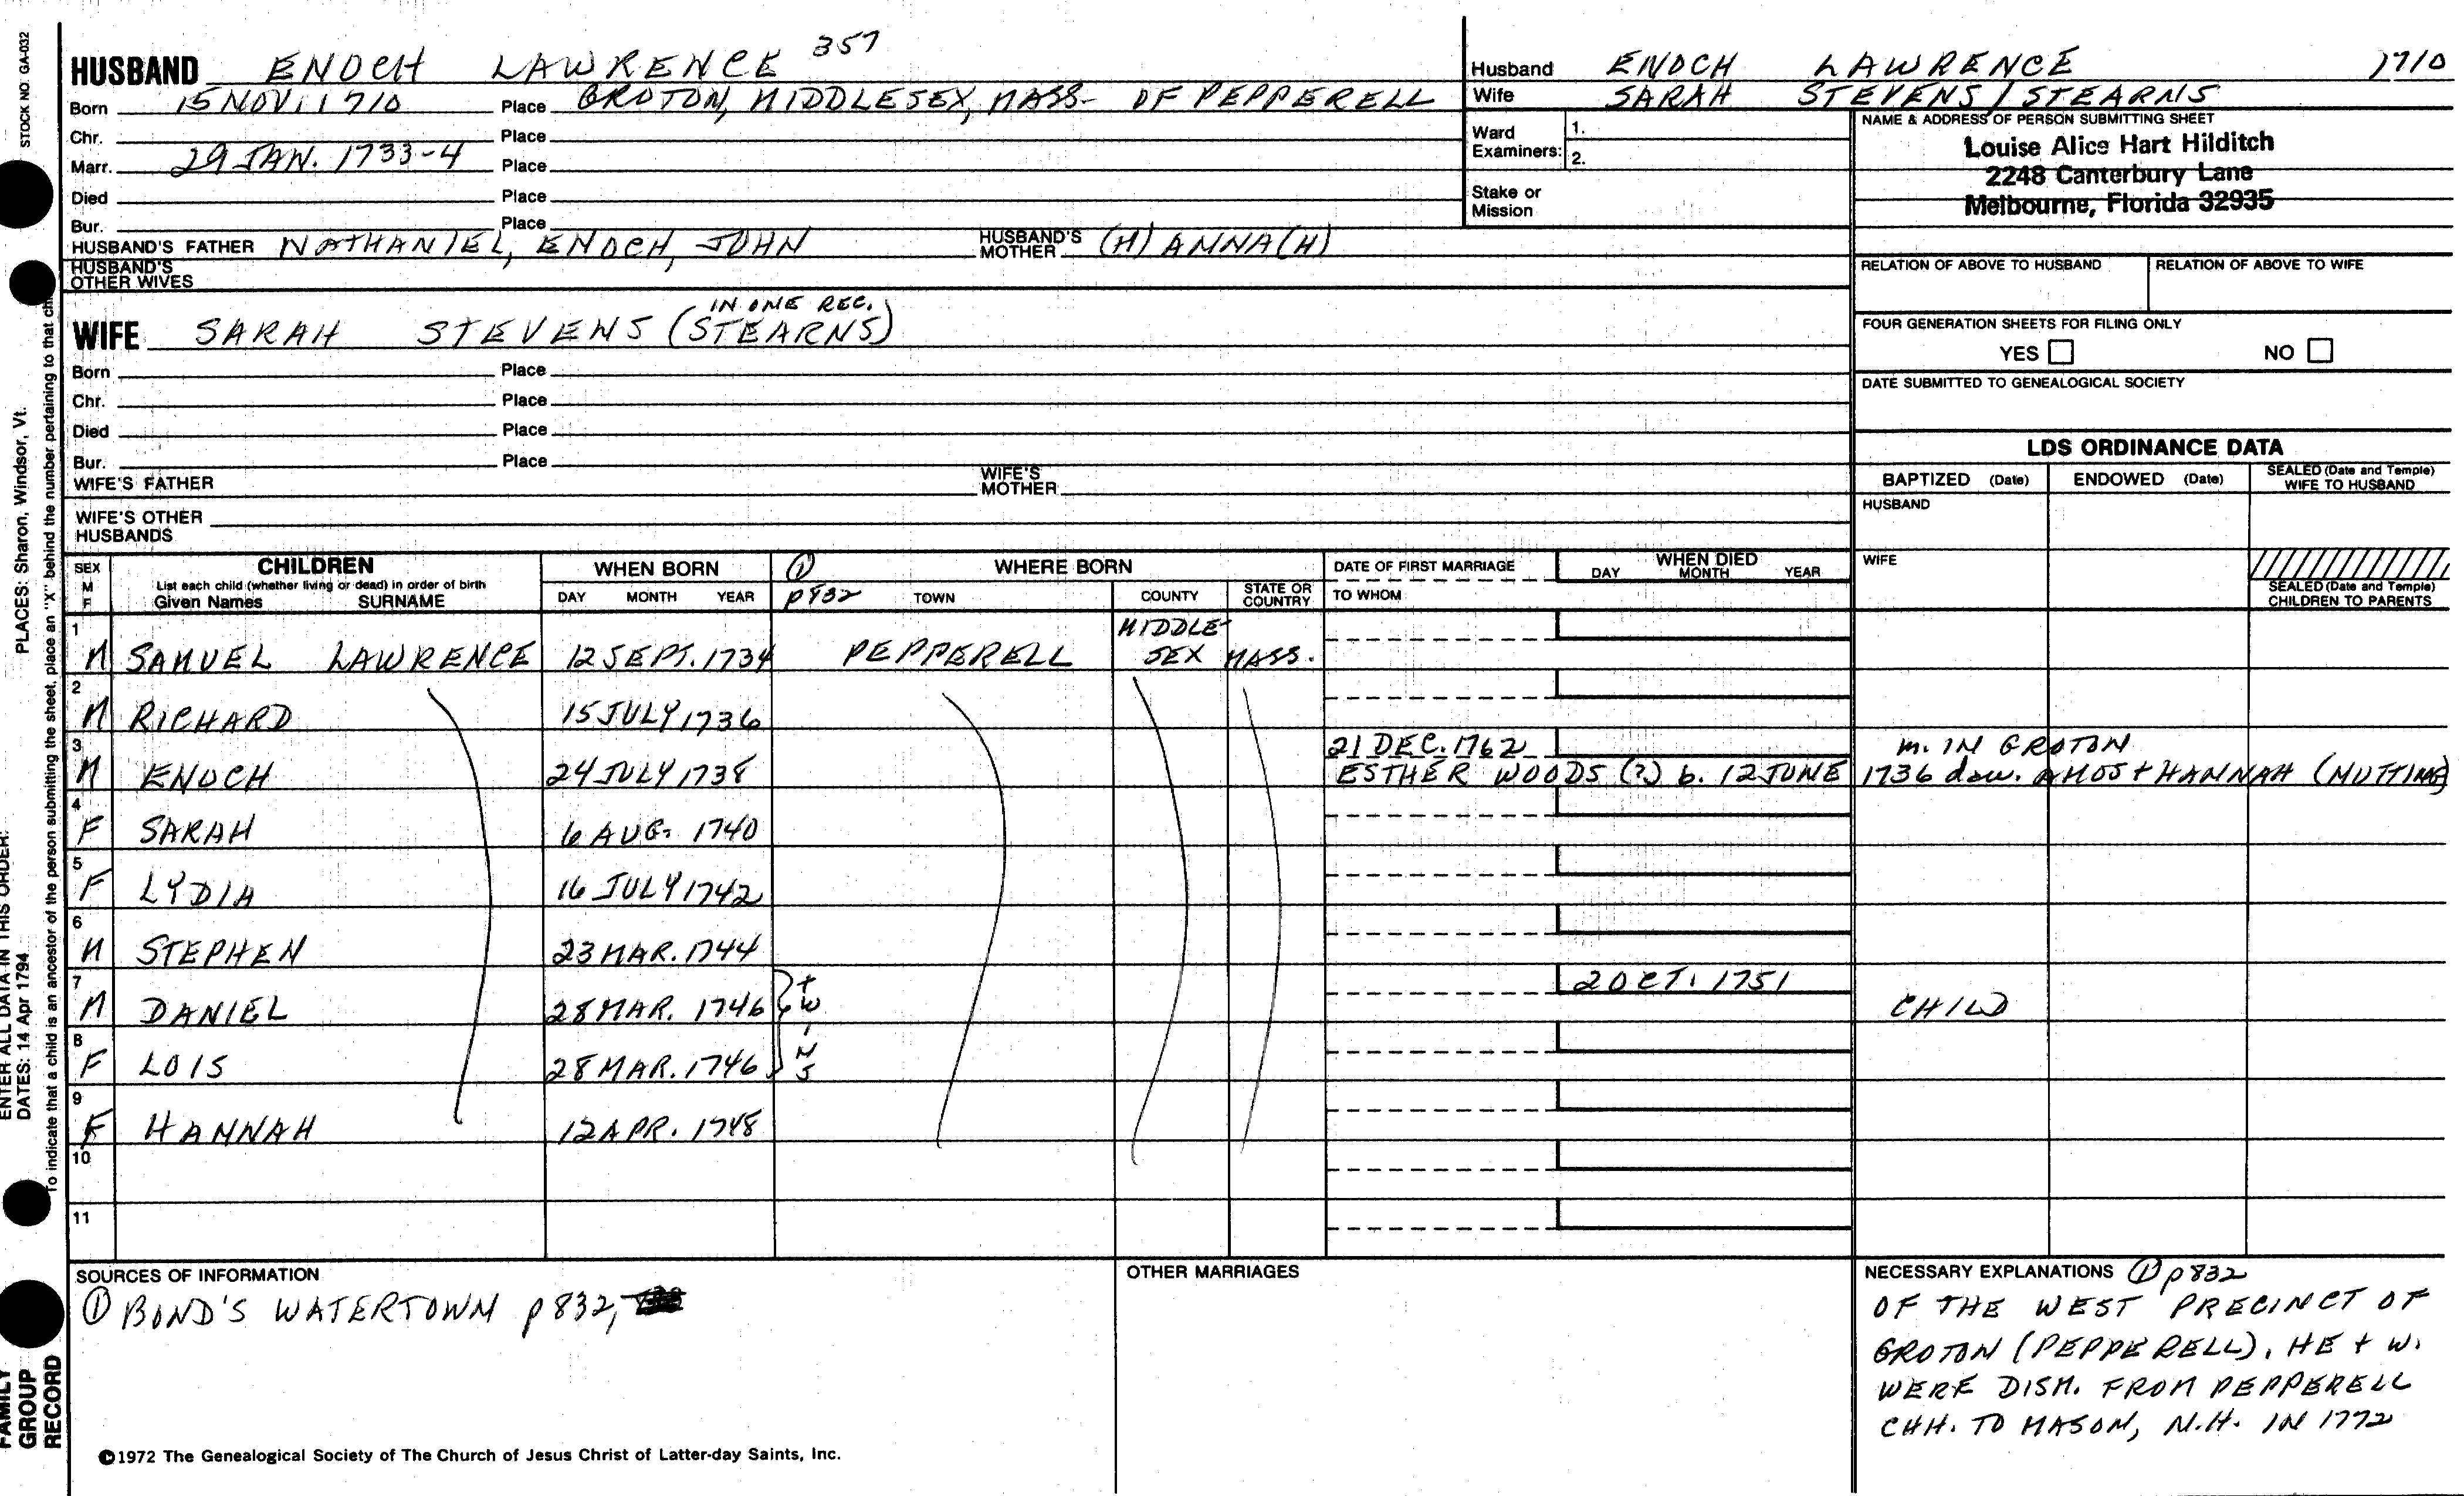 STOCK NO. GA-032
PLACES: Sharon, Windsor, Vt.
ENTER ALL DATA IN THIS ORDER:
DATES: 14 Apr 1794
To indicate that a child is an ancestor of the person submitting the sheet, place an "X" behind the number pertaining to that
FAMILY
GROUP
RECORD
HUSBAND ENOCH LAWRENCE 357
Born 15 NOV. 1710 Place GROTON, MIDDLESEX, MASS- OF PEPPERELL
Chr. Place
Marr. 29 JAN. 1733-4 Place
Died Place
Bur. Place
HUSBAND'S FATHER NATHANIEL, ENOCH, JOHN HUSBAND'S MOTHER (H)ANNA(H)
HUSBAND'S OTHER WIVES
IN ONE REC.
WIFE SARAH STEVENS (STEARNS)
Born Place
Chr. Place
Died Place
Bur. Place
WIFE'S FATHER WIFE'S MOTHER
WIFE'S OTHER HUSBANDS
Husband ENOCH LAWRENCE 1710
Wife SARAH STEVENS / STEARNS
Ward Examiners: 1.
2.
Stake or Mission
NAME & ADDRESS OF PERSON SUBMITTING SHEET
Louise Alice Hart Hilditch
2248 Canterbury Lane
Melbourne, Florida 32935
RELATION OF ABOVE TO HUSBAND RELATION OF ABOVE TO WIFE
FOUR GENERATION SHEETS FOR FILING ONLY
YES NO
DATE SUBMITTED TO GENEALOGICAL SOCIETY
LDS ORDINANCE DATA
BAPTIZED (Date) ENDOWED (Date) SEALED (Date and Temple) WIFE TO HUSBAND
HUSBAND
WIFE
SEALED (Date and Temple) CHILDREN TO PARENTS
SEX M F CHILDREN WHEN BORN ① WHERE BORN DATE OF FIRST MARRIAGE WHEN DIED
List each child (whether living or dead) in order of birth
Given Names SURNAME DAY MONTH YEAR p832 TOWN COUNTY STATE OR COUNTRY TO WHOM DAY MONTH YEAR
1 M SAMUEL LAWRENCE 12 SEPT. 1734 PEPPERELL MIDDLE-SEX MASS.
2 M RICHARD 15 JULY 1736
3 M ENOCH 24 JULY 1738 21 DEC. 1762 m. IN GROTON
ESTHER WOODS (?) b. 12 JUNE 1736 dau. AMOS + HANNAH (NUTTING)
4 F SARAH 6 AUG. 1740
5 F LYDIA 16 JULY 1742
6 M STEPHEN 23 MAR. 1744
7 M DANIEL 28 MAR. 1746 twins 2 OCT. 1751 CHILD
8 F LOIS 28 MAR. 1746
9 F HANNAH 12 APR. 1748
10
11
SOURCES OF INFORMATION
① BOND'S WATERTOWN p832,
OTHER MARRIAGES
NECESSARY EXPLANATIONS ① p832
OF THE WEST PRECINCT OF
GROTON (PEPPERELL). HE + W.
WERE DISM. FROM PEPPERELL
CHH. TO MASON, N.H. IN 1772
©1972 The Genealogical Society of The Church of Jesus Christ of Latter-day Saints, Inc.